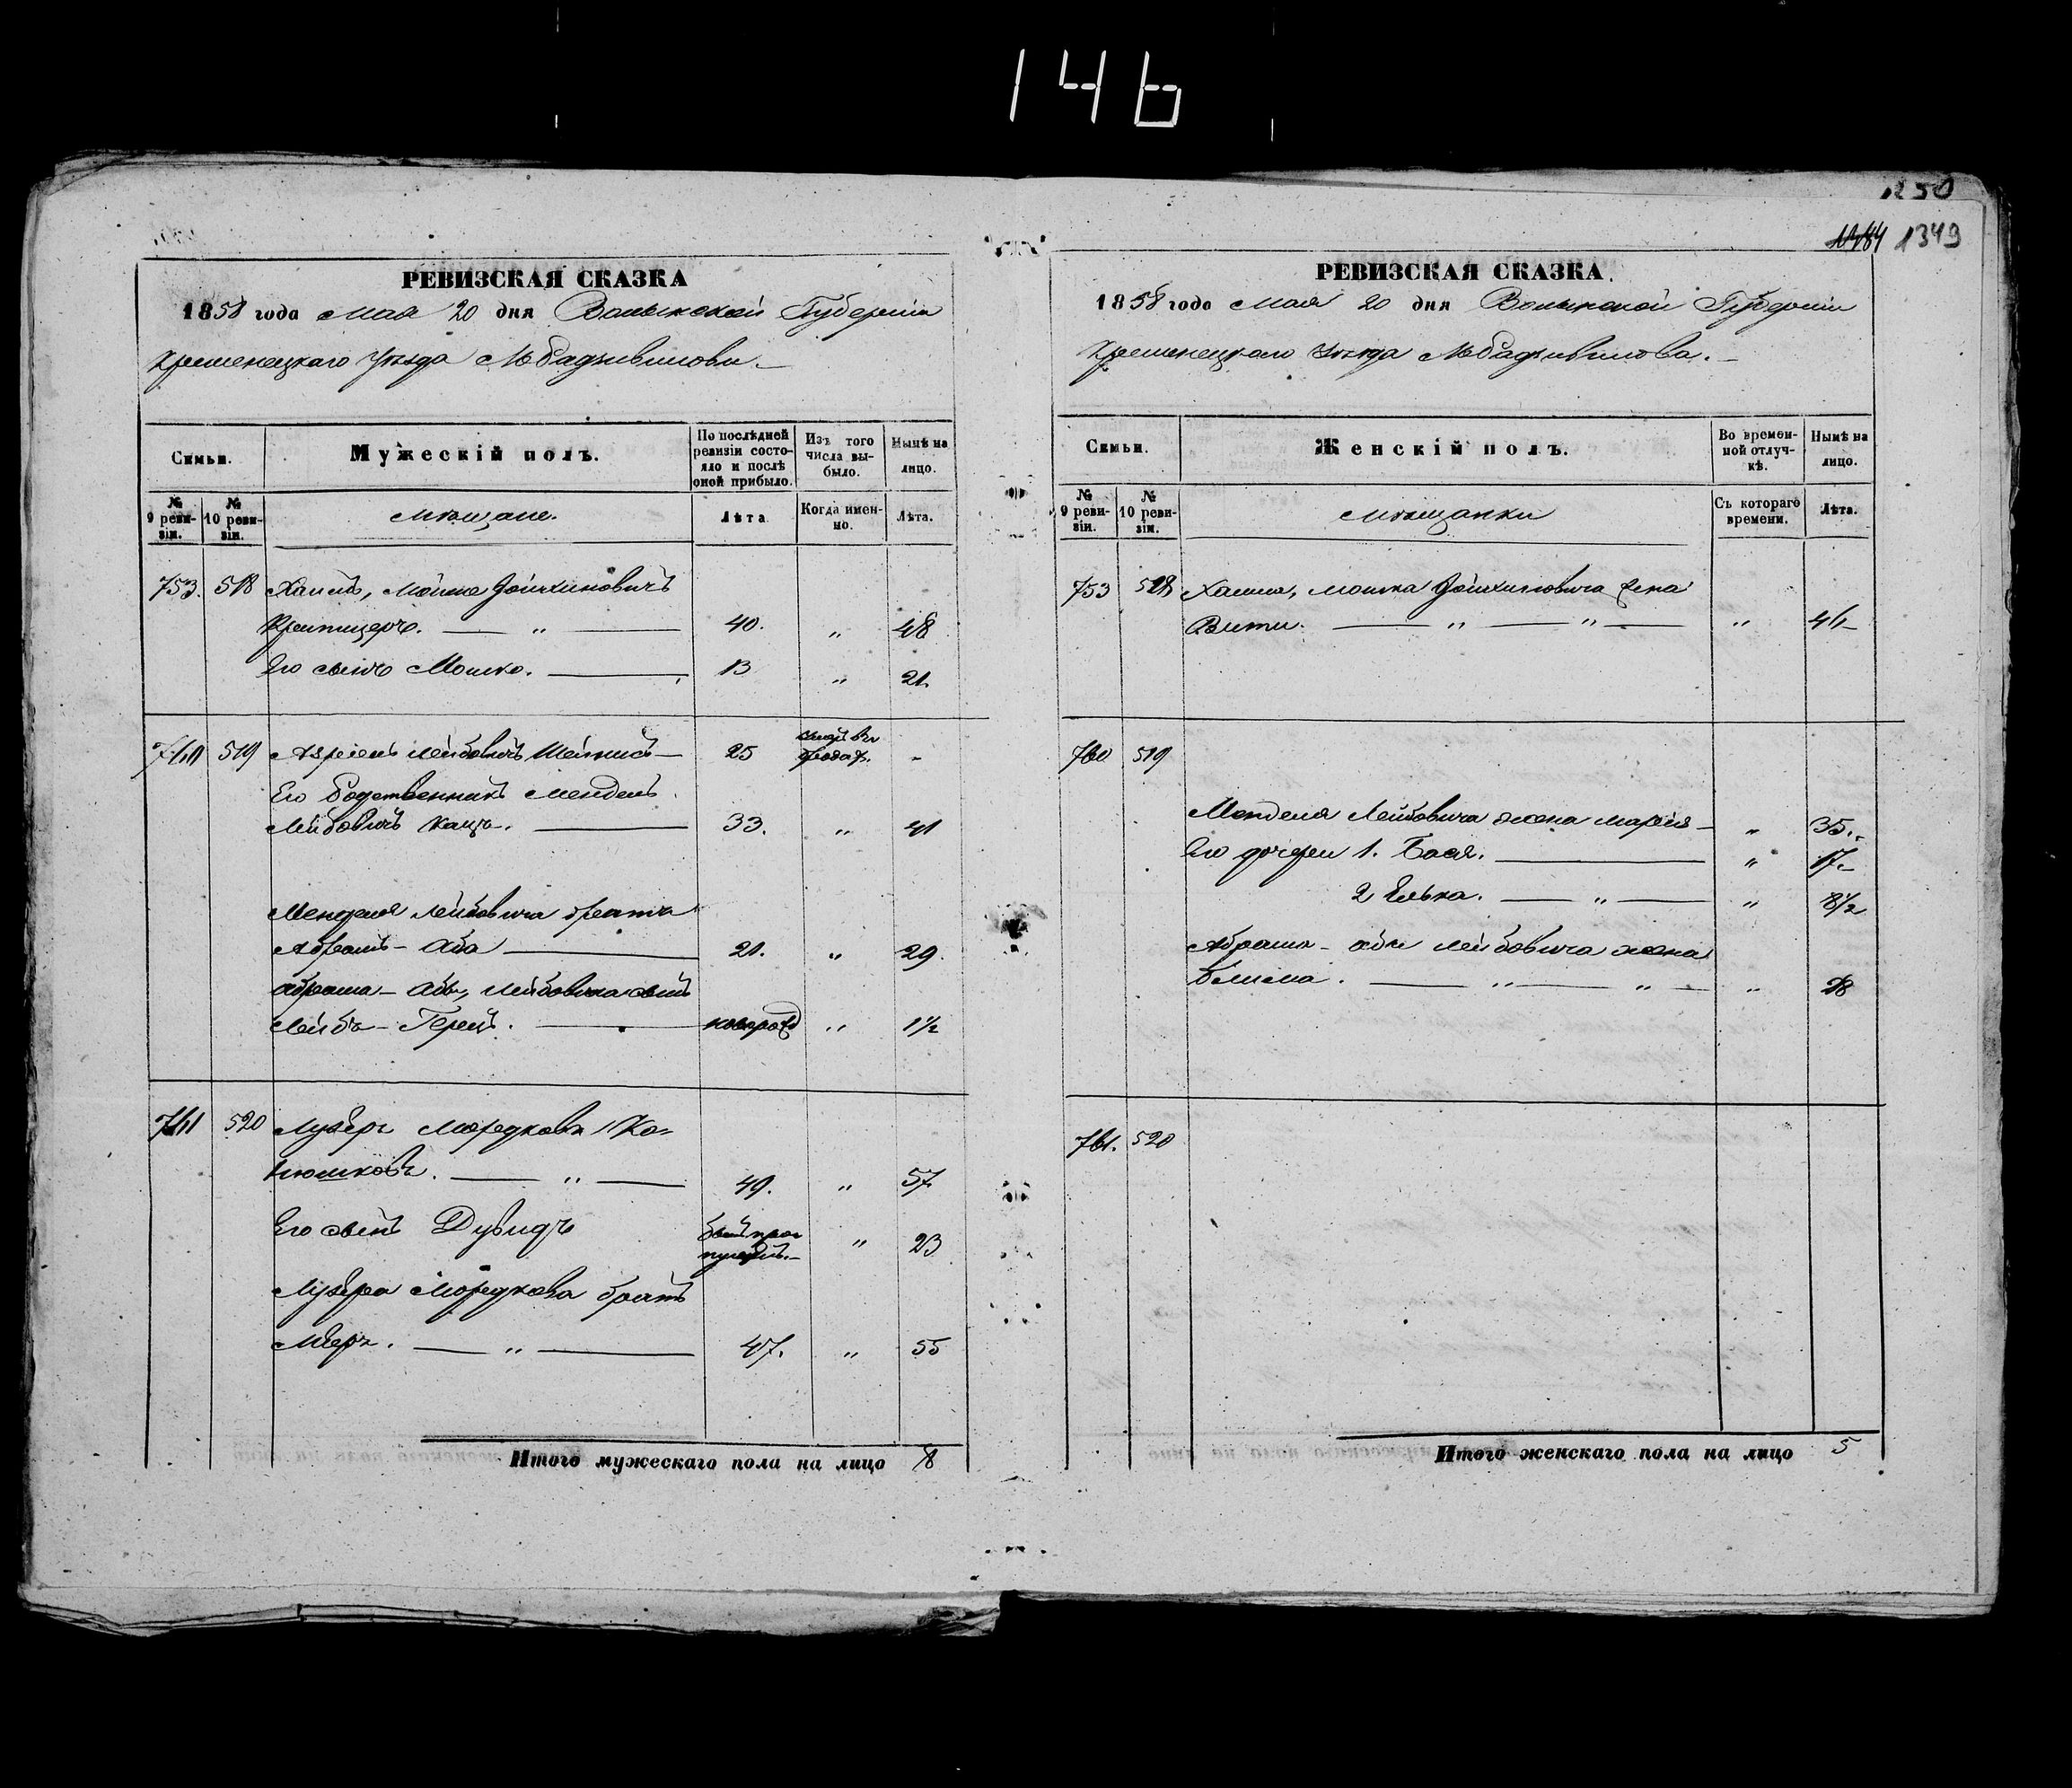 146
1250
1484 1349
РЕВИЗСКАЯ СКАЗКА
1858 года мая 20 дня Волынской Губерніи
Кременецкаго Уѣзда М. Радзивилова.
Семьи.
Мужескій полъ.
По послѣдней ревизіи состояло и послѣ оной прибыло.
Изъ того числа выбыло.
Нынѣ на лицо.
№ 9 ревизіи.
№ 10 ревизіи.
мѣщане.
Лѣта
Когда именно.
Лѣта.
753. 518 Хаимъ, Мошко
40. „ 48
Его сынъ Мошко. 13 „ 21.
760 519 Лейбовичъ 25 -
Его Родственникъ Мендель
Лейбовичъ Кацъ. 33. „ 41
Менделя Лейбовича братъ
Абрамъ - Аба 21. „ 29.
Абрама - Абы, Лейбовича сынъ
Лейбъ - Герецъ. новорожд „ 1½
761 520 Лузеръ Мордковъ Ко-
нюшковъ. „ 49. „ 57.
Его сынъ Дувидъ былъ пропущенъ. „ 23
Лузера Мордкова братъ
Меръ. „ 47. „ 55
Итого мужескаго пола на лицо 8
РЕВИЗСКАЯ СКАЗКА.
1858 года мая 20 дня Волынской Губерніи
Кременецкаго Уѣзда М. Радзивилова.
Семьи.
Женскій полъ.
Во временной отлучкѣ.
Нынѣ на лицо.
№ 9 ревизіи.
№ 10 ревизіи.
мѣщанки
Съ котораго времени.
Лѣта.
753 518 Хаима, Мошка жена
„ „ „
760 519
Менделя Лейбовича жена „ 35.
Его дочери 1. Бася. „ 17.
2 Елька. „ „ 8½
Абрама - Абы Лейбовича жена
„ „ „ 28
761. 520
Итого женскаго пола на лицо 5